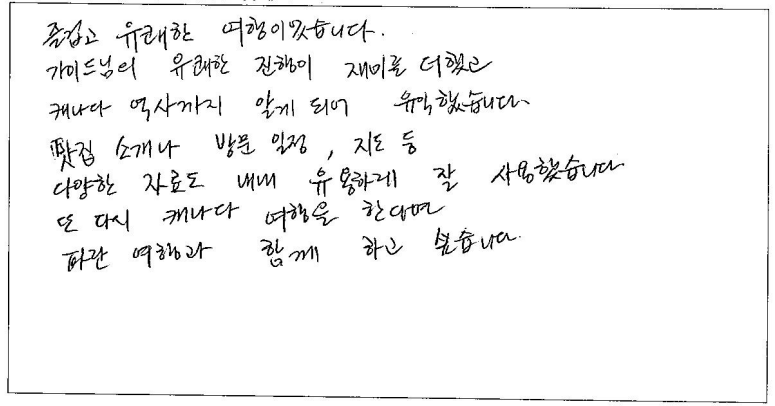 즐겁고 유쾌한 여행이었습니다.
가이드님의 유쾌한 진행이 재미를 더했고
캐나다 역사까지 알게 되어 유익했습니다.
맛집 소개나 방문 일정, 지도 등
다양한 자료도 내내 유용하게 잘 사용했습니다
또 다시 캐나다 여행을 한다면
파란 여행과 함께 하고 싶습니다.